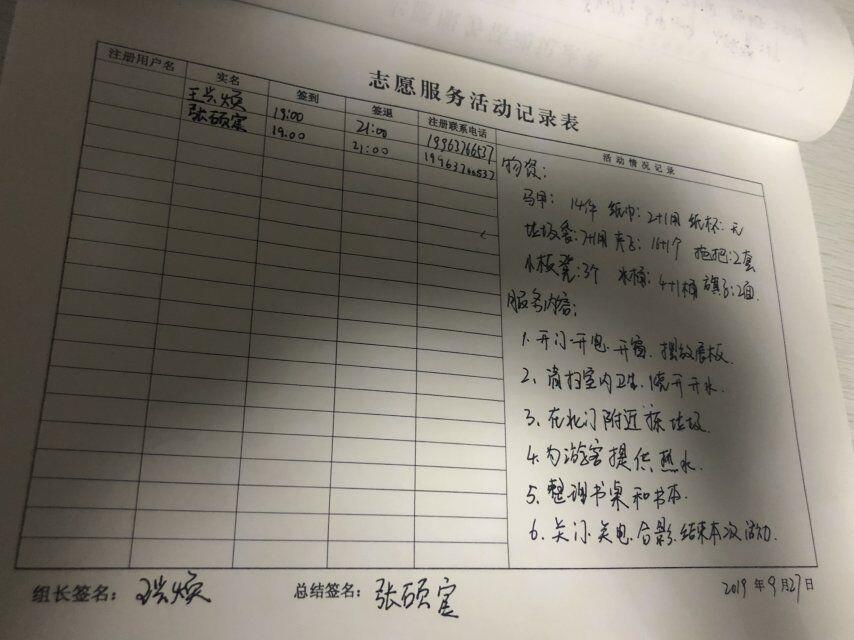 志愿服务活动记录表
注册用户名 实名 签到 签退 注册联系电话 活动情况记录
王兴焕 19:00 21:00 19963766537
张硕 19:00 21:00 19963766537
物资:
马甲: 14件 纸巾: 2+1用 纸杯: 无
垃圾袋: 7+1用 夹子: 16+1个 拖把: 2套
小板凳: 3个 水桶: 4+1桶 旗子: 2面
服务内容:
1. 开门、开电、开窗、摆放展板.
2、清扫室内卫生、烧开开水.
3、在北门附近捡垃圾.
4.为游客提供热水.
5、整理书桌和书本.
6、关门、关电、合影、结束本次活动.
组长签名:
总结签名: 张硕
2019 年 9 月 27 日